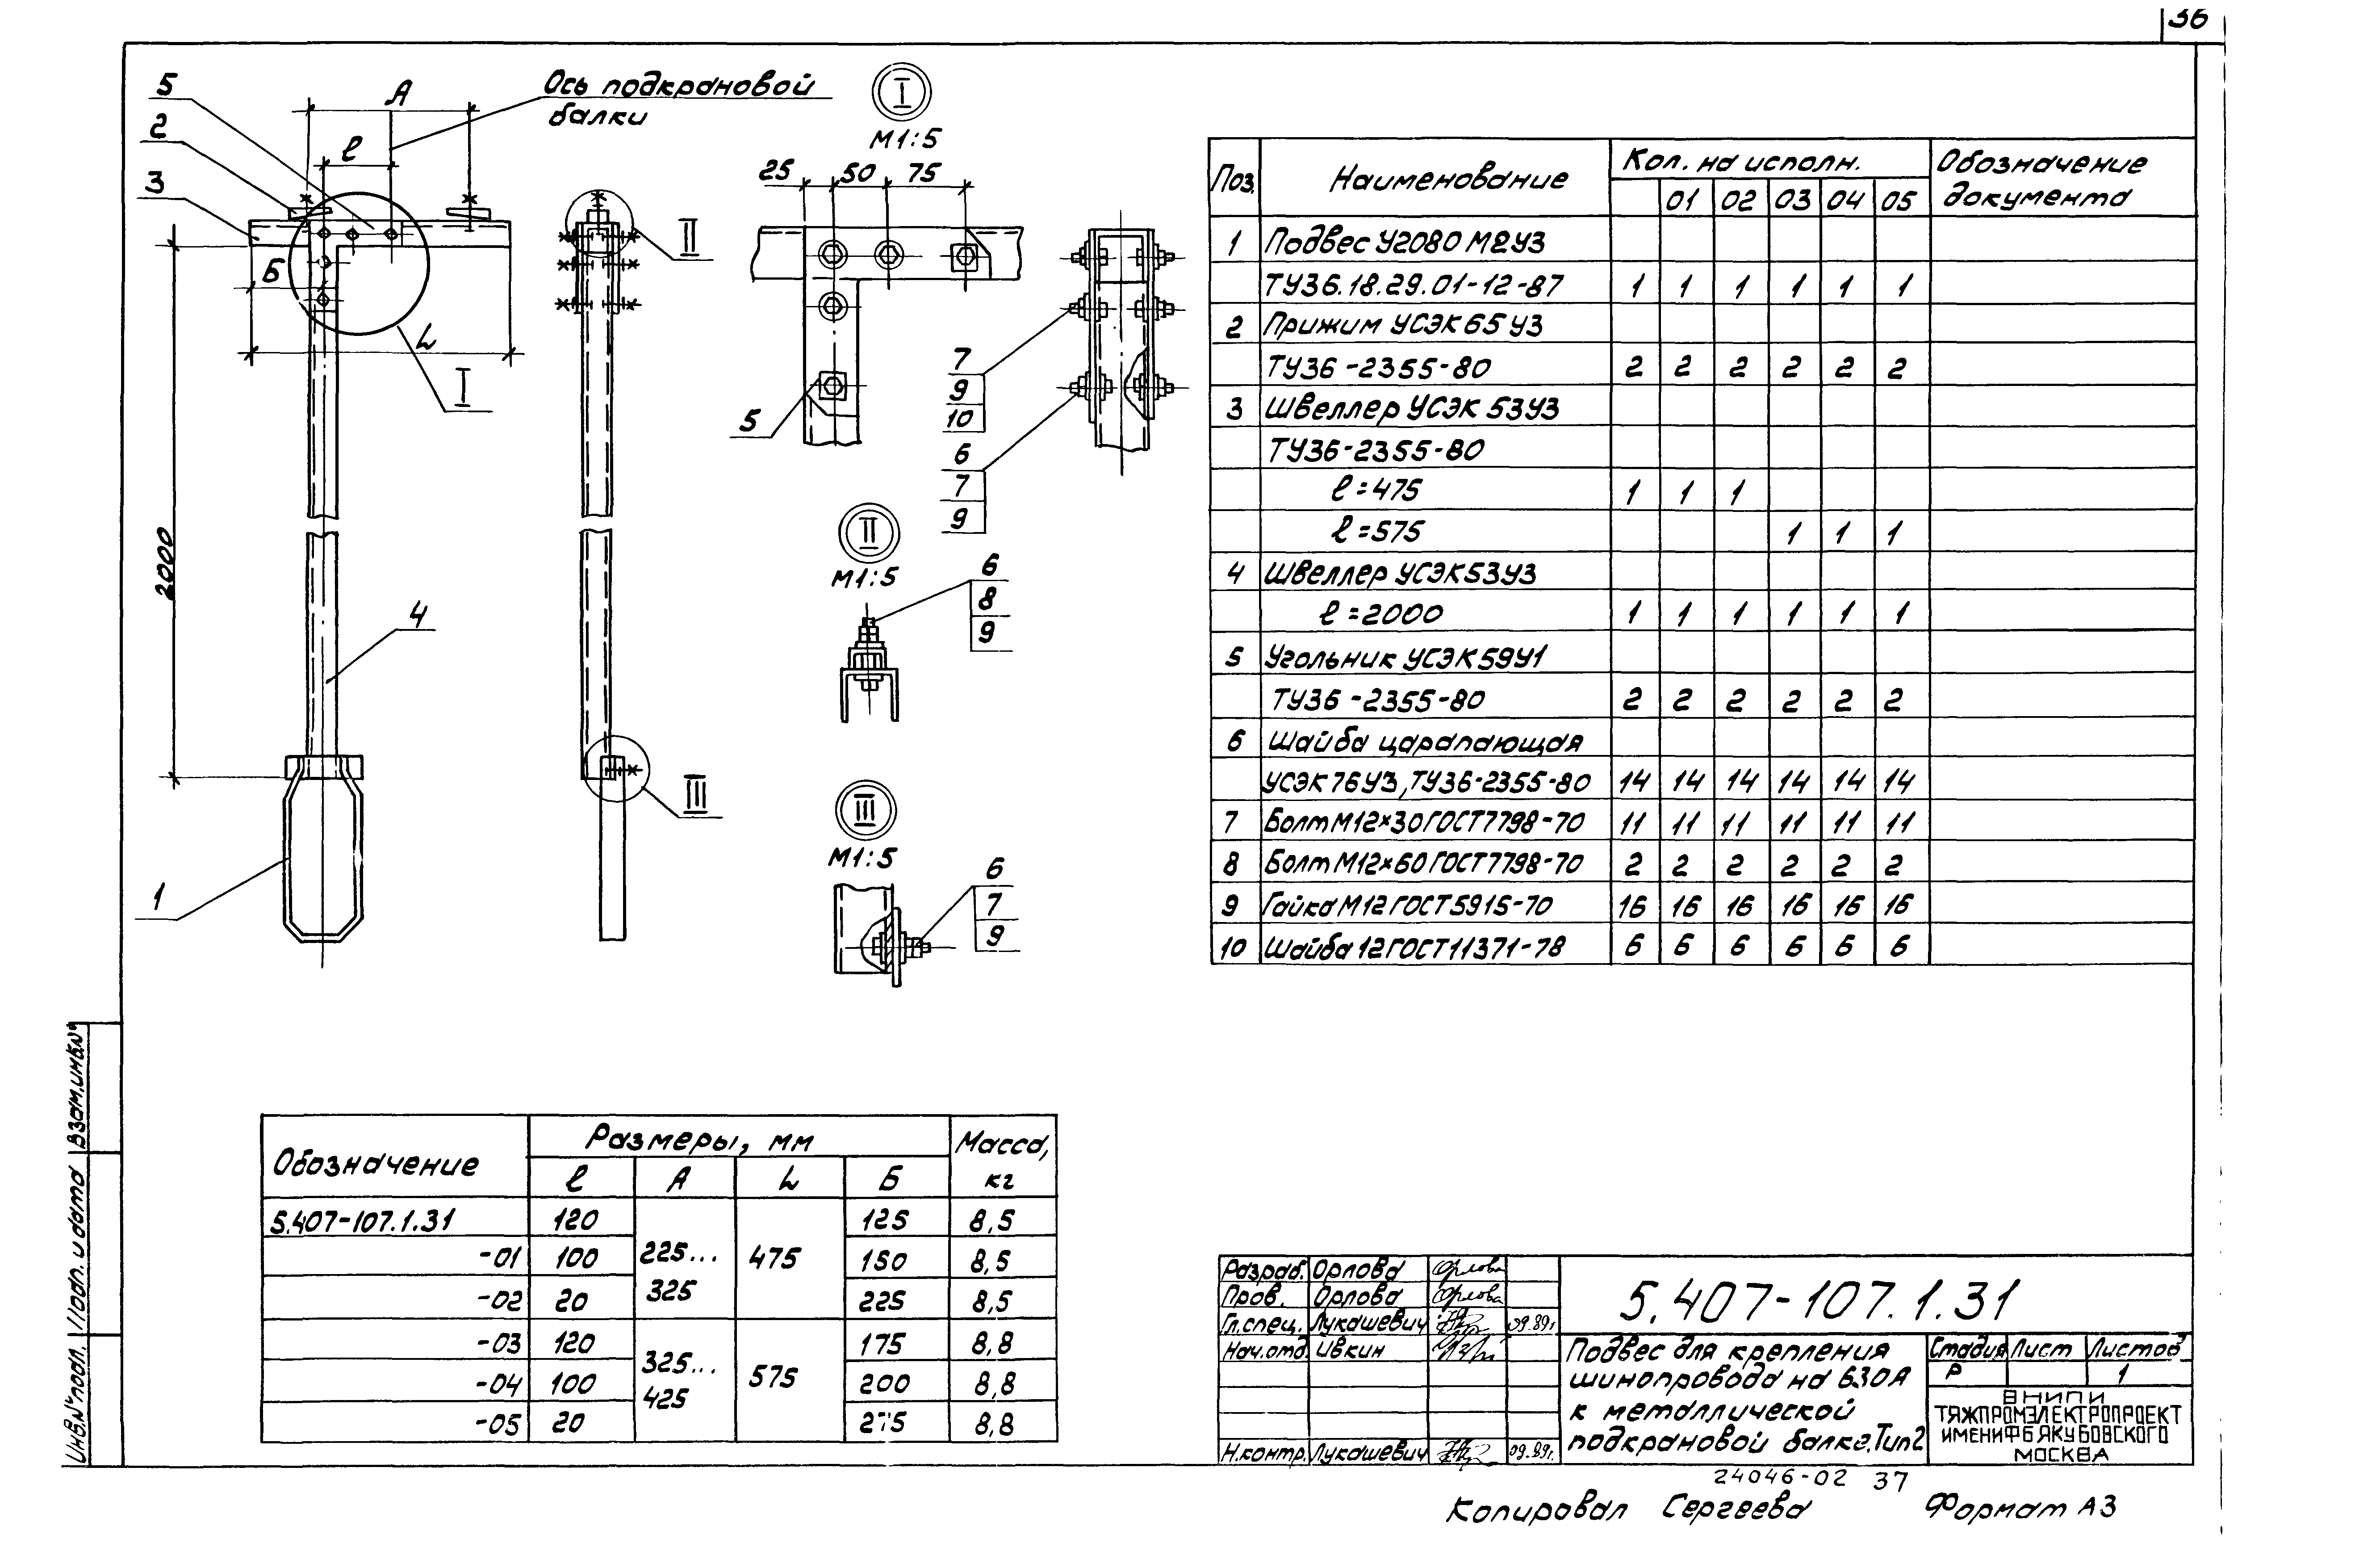 36
5
2
3
А
Ось подкрановой
балки
ℓ
Б
L
I
2000
4
1
II
III
I
М1:5
25 50 75
5
7
9
10
6
7
9
II
М1:5
6
8
9
III
М1:5
6
7
9
Поз. Наименование Кол. на исполн. Обозначение документа
01 02 03 04 05
1 Подвес У2080 М2У3
ТУ36.18.29.01-12-87 1 1 1 1 1 1
2 Прижим УСЭК 65 У3
ТУ36-2355-80 2 2 2 2 2 2
3 Швеллер УСЭК 53У3
ТУ36-2355-80
ℓ=475 1 1 1
ℓ=575 1 1 1
4 Швеллер УСЭК53У3
ℓ=2000 1 1 1 1 1 1
5 Угольник УСЭК59У1
ТУ36-2355-80 2 2 2 2 2 2
6 Шайба царапающая
УСЭК 76У3, ТУ36-2355-80 14 14 14 14 14 14
7 Болт М12×30 ГОСТ7798-70 11 11 11 11 11 11
8 Болт М12×60 ГОСТ7798-70 2 2 2 2 2 2
9 Гайка М12 ГОСТ5915-70 16 16 16 16 16 16
10 Шайба 12 ГОСТ11371-78 6 6 6 6 6 6
Обозначение Размеры, мм Масса, кг
ℓ А L Б
5.407-107.1.31 120 225...325 475 125 8,5
-01 100 150 8,5
-02 20 225 8,5
-03 120 325...425 575 175 8,8
-04 100 200 8,8
-05 20 275 8,8
Инв.№ подл. Подп. и дата Взам.инв.№
Разраб. Орлова Орлова
Пров. Орлова Орлова
Гл.спец. Лукашевич 09.89г.
Нач.отд. Ивкин
Н.контр. Лукашевич 09.89г.
5.407-107.1.31
Подвес для крепления
шинопровода на 630А
к металлической
подкрановой балке. Тип 2
Стадия Лист Листов
Р 1
ВНИПИ
ТЯЖПРОМЭЛЕКТРОПРОЕКТ
ИМЕНИ Ф Б ЯКУБОВСКОГО
МОСКВА
24046-02 37
Копировал Сергеева Формат А3